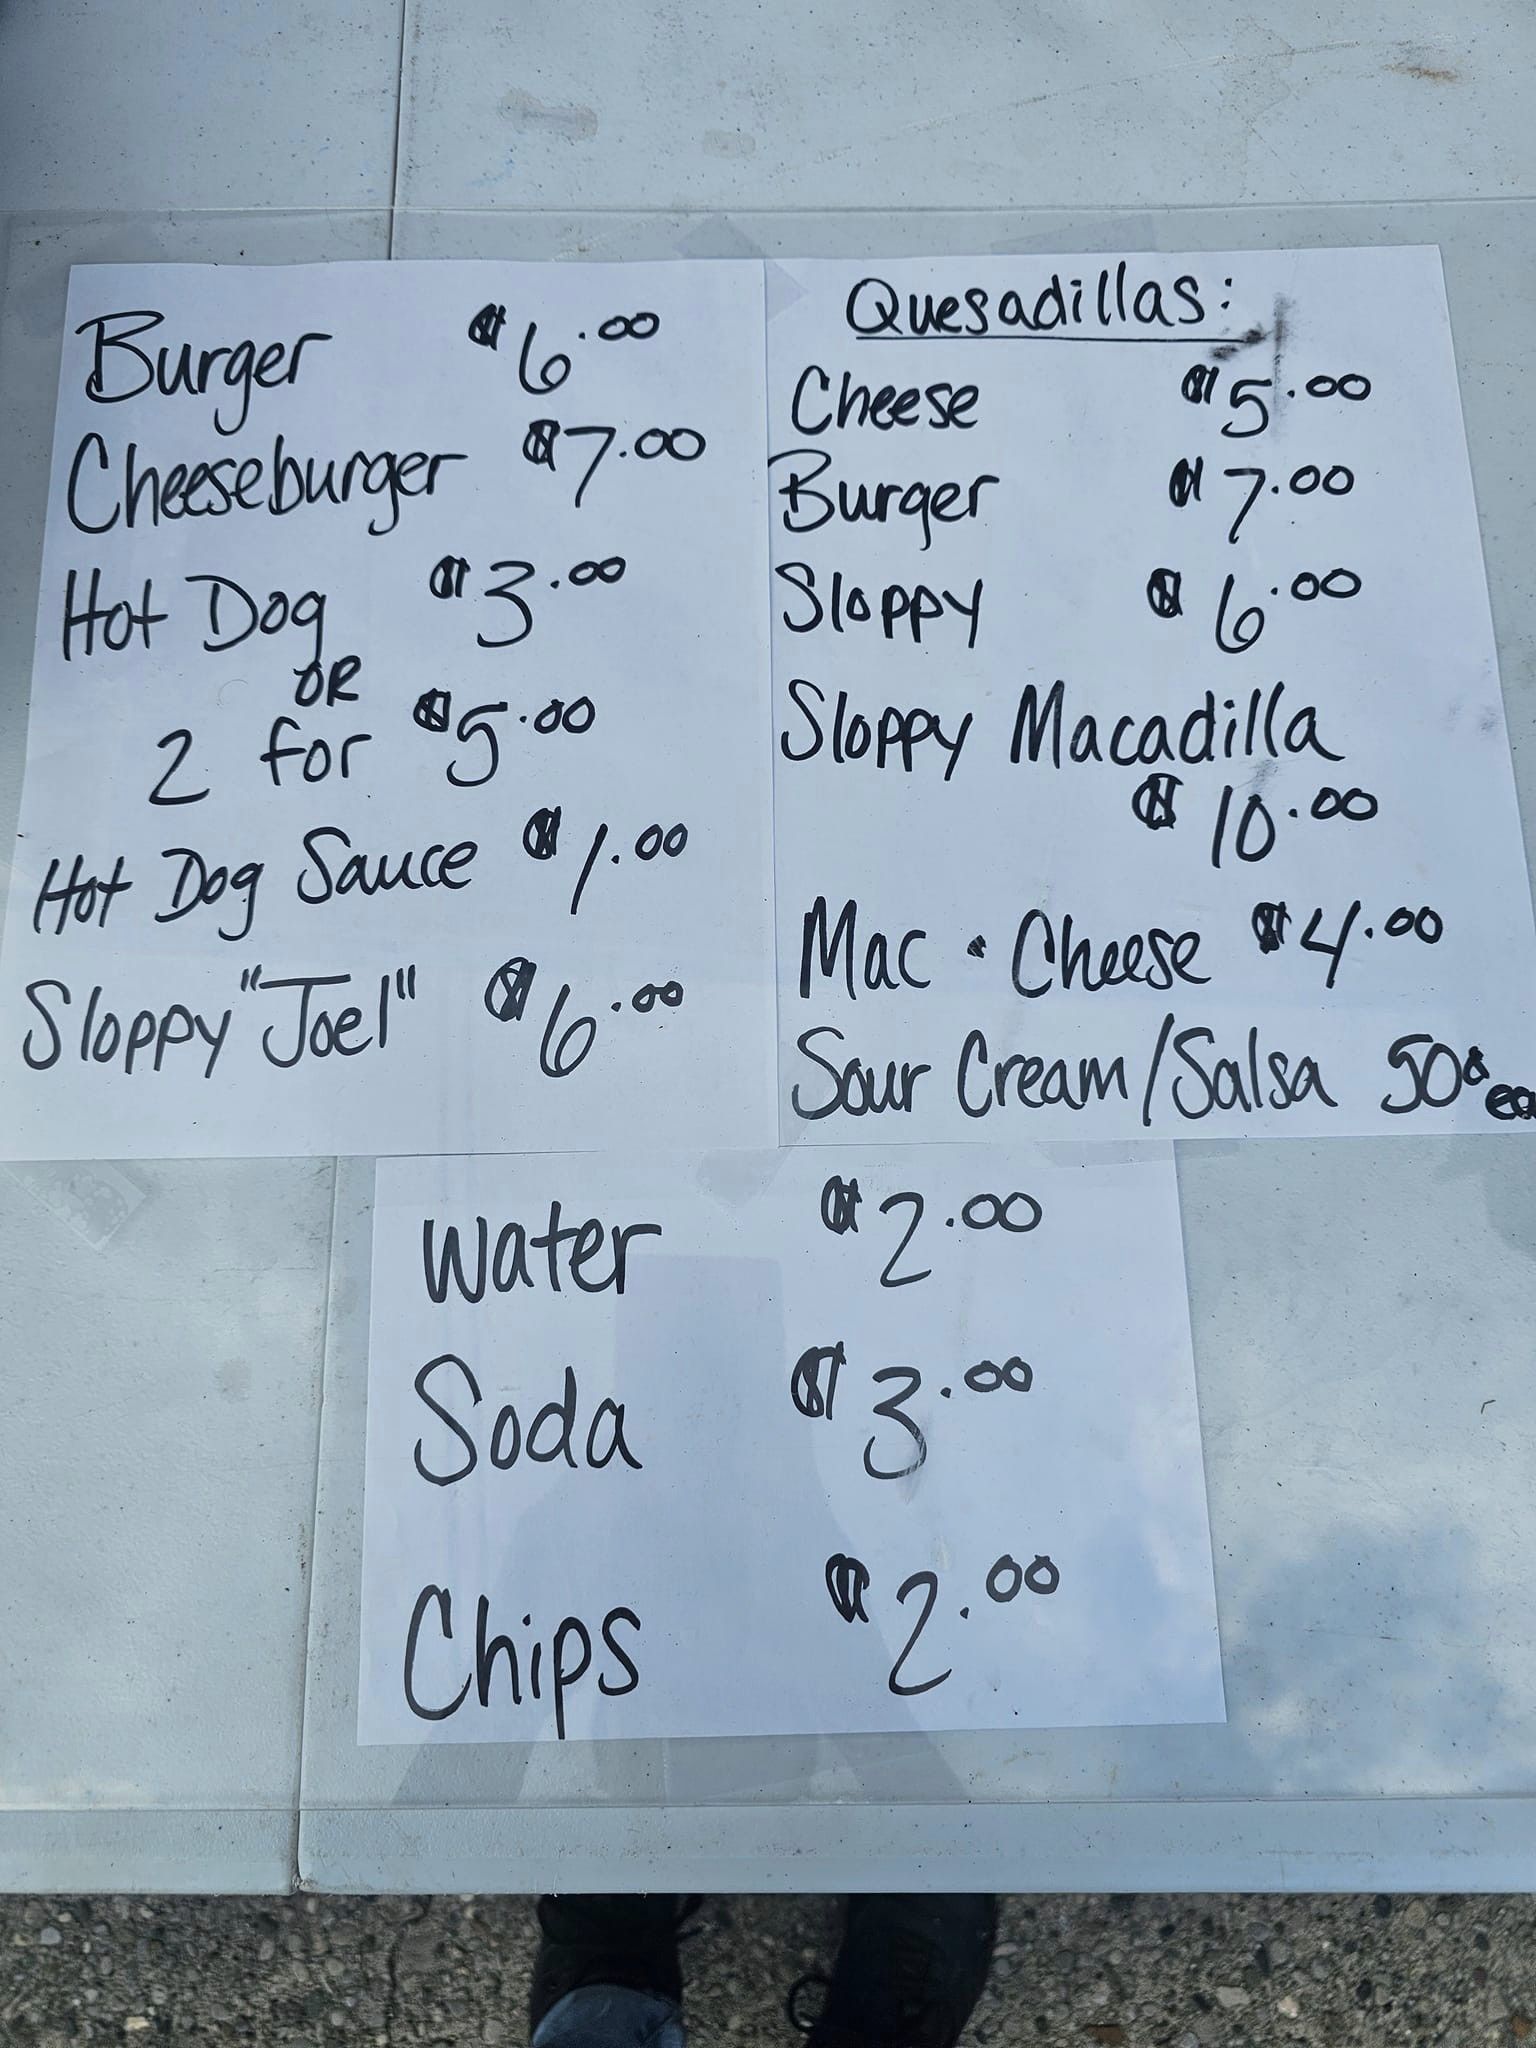 Burger $6.00
Cheeseburger $7.00
Hot Dog $3.00
OR
2 for $5.00
Hot Dog Sauce $1.00
Sloppy "Joel" $6.00
Quesadillas:
Cheese $5.00
Burger $7.00
Sloppy $6.00
Sloppy Macadilla
$10.00
Mac • Cheese $4.00
Sour Cream/Salsa 50¢ ea
Water $2.00
Soda $3.00
Chips $2.00